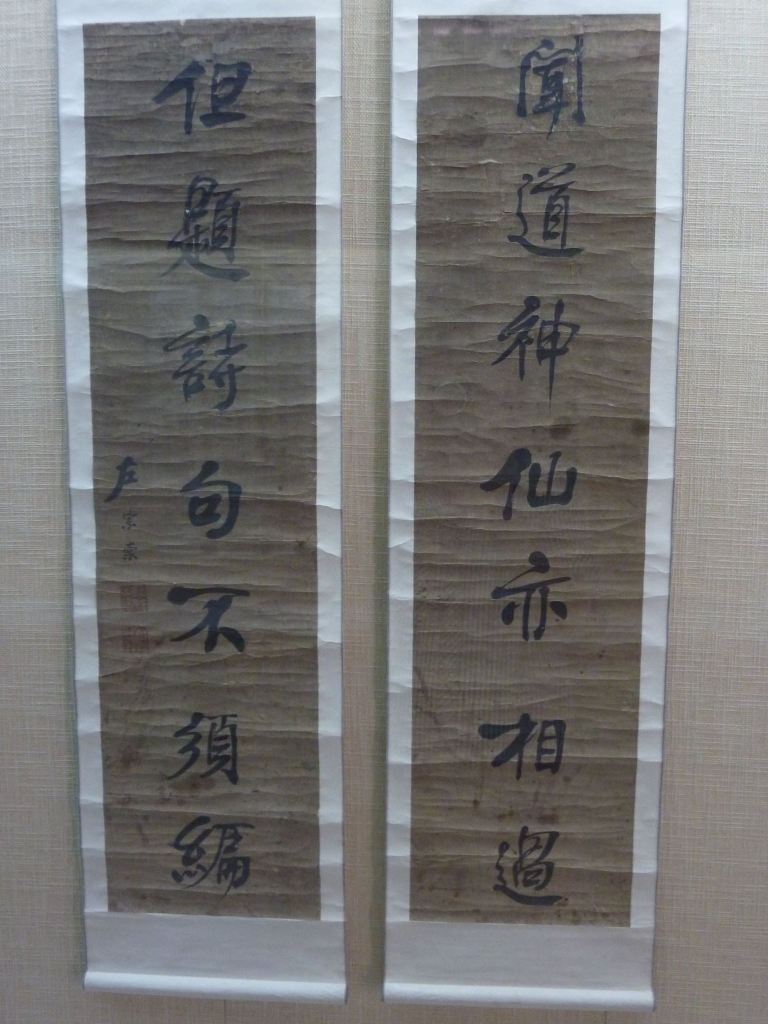 聞道神仙亦相過
但題詩句不須編
左宗棠